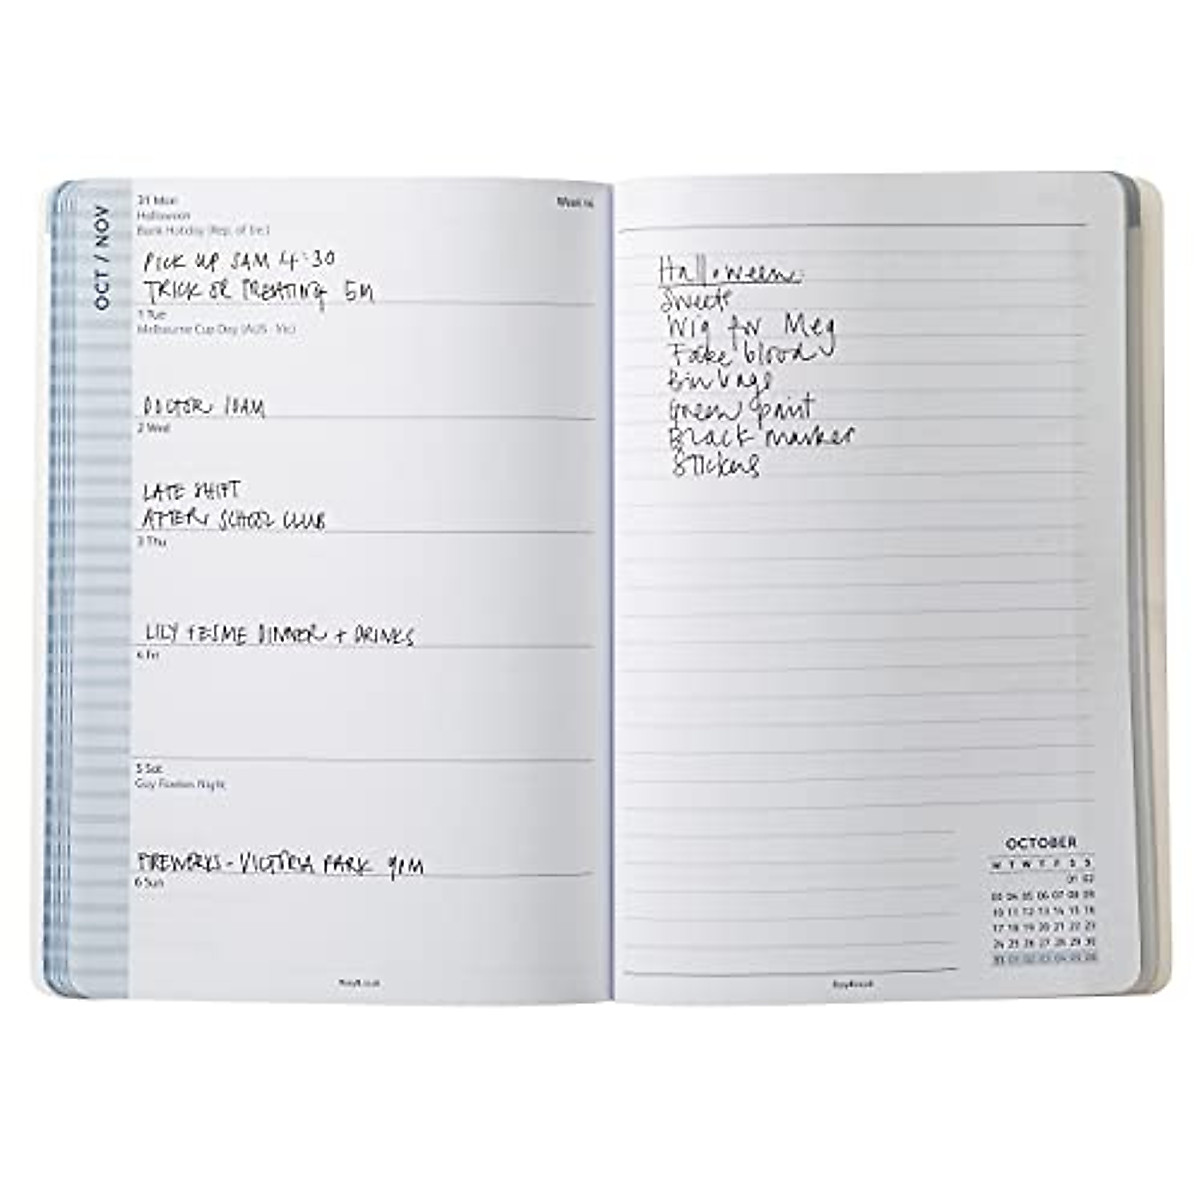 OCT / NOV
31 Mon
Halloween
Bank Holiday (Rep. of Ire.)
PICK UP SAM 4:30
TRICK OR TREATING
1 Tue
Melbourne Cup Day (AUS - Vic)
DOCTOR 10AM
2 Wed
LATE SHIFT
AFTER SCHOOL CLUB
3 Thu
LILY + ESME DINNER + DRINKS
4 Fri
5 Sat
Guy Fawkes Night
FIREWORKS - VICTORIA PARK
6 Sun
Week
Halloween:
Sweets
Wig for Meg
Fake blood
Bin bags
Green paint
Black marker
Stickers
OCTOBER
M T W T F S S
01 02
03 04 05 06 07 08 09
10 11 12 13 14 15 16
17 18 19 20 21 22 23
24 25 26 27 28 29 30
31 01 02 03 04 05 06